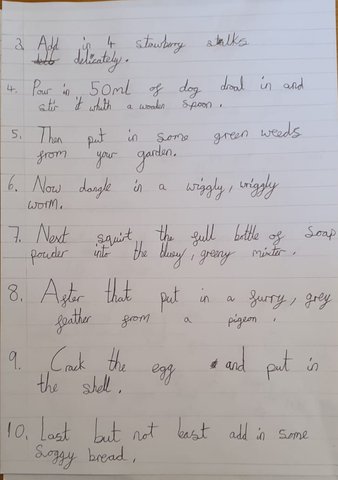 3. Add in 4 strawberry stalks
delicately.
4. Pour in, 50ml of dog drool in and
stir it whith a wooden spoon.
5. Then put in some green weeds
from your garden.
6. Now dangle in a wiggly, wriggly
worm.
7. Next squirt the full bottle of soap
powder into the bluey, greeny mixter.
8. After that put in a furry, grey
feather from a pigeon.
9. Crack the egg and put in
the shell.
10. Last but not least add in some
soggy bread.